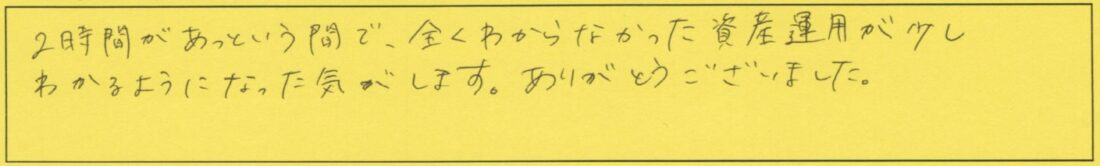 2時間があっという間で、全くわからなかった資産運用が少し
わかるようになった気がします。ありがとうございました。